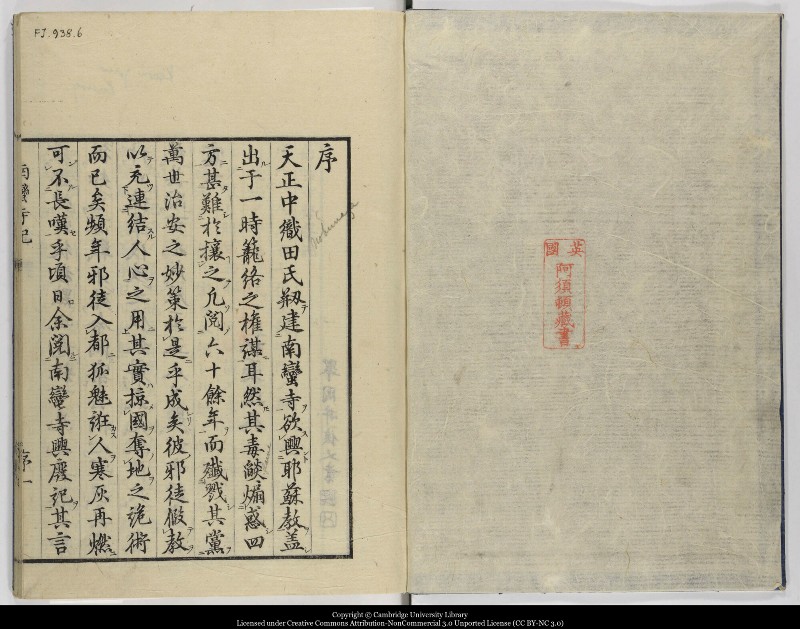 FJ.938.6
英國
阿須頓藏書
序
天正中織田氏剏建南蠻寺欲興耶蘇教蓋
出于一時籠絡之権謀耳然其毒燄煽惑四
方甚難於攘之凡閱六十餘年而殱戮其黨
萬世治安之妙策於是乎成矣彼邪徒假教
以充連結人心之用其實掠國奪地之詭術
而已矣頻年邪徒入都狐魅誑人寒灰再燃
可不長嘆乎頃日余閱南蠻寺興廢記其言
南蠻寺記
序一
Copyright © Cambridge University Library
Licensed under Creative Commons Attribution-NonCommercial 3.0 Unported License (CC BY-NC 3.0)